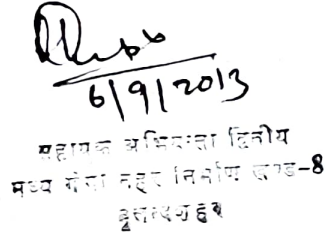 6/9/2013
सहायक अभियन्ता द्वितीय
मध्य गंगा नहर निर्माण खण्ड-8
बुलन्दशहर